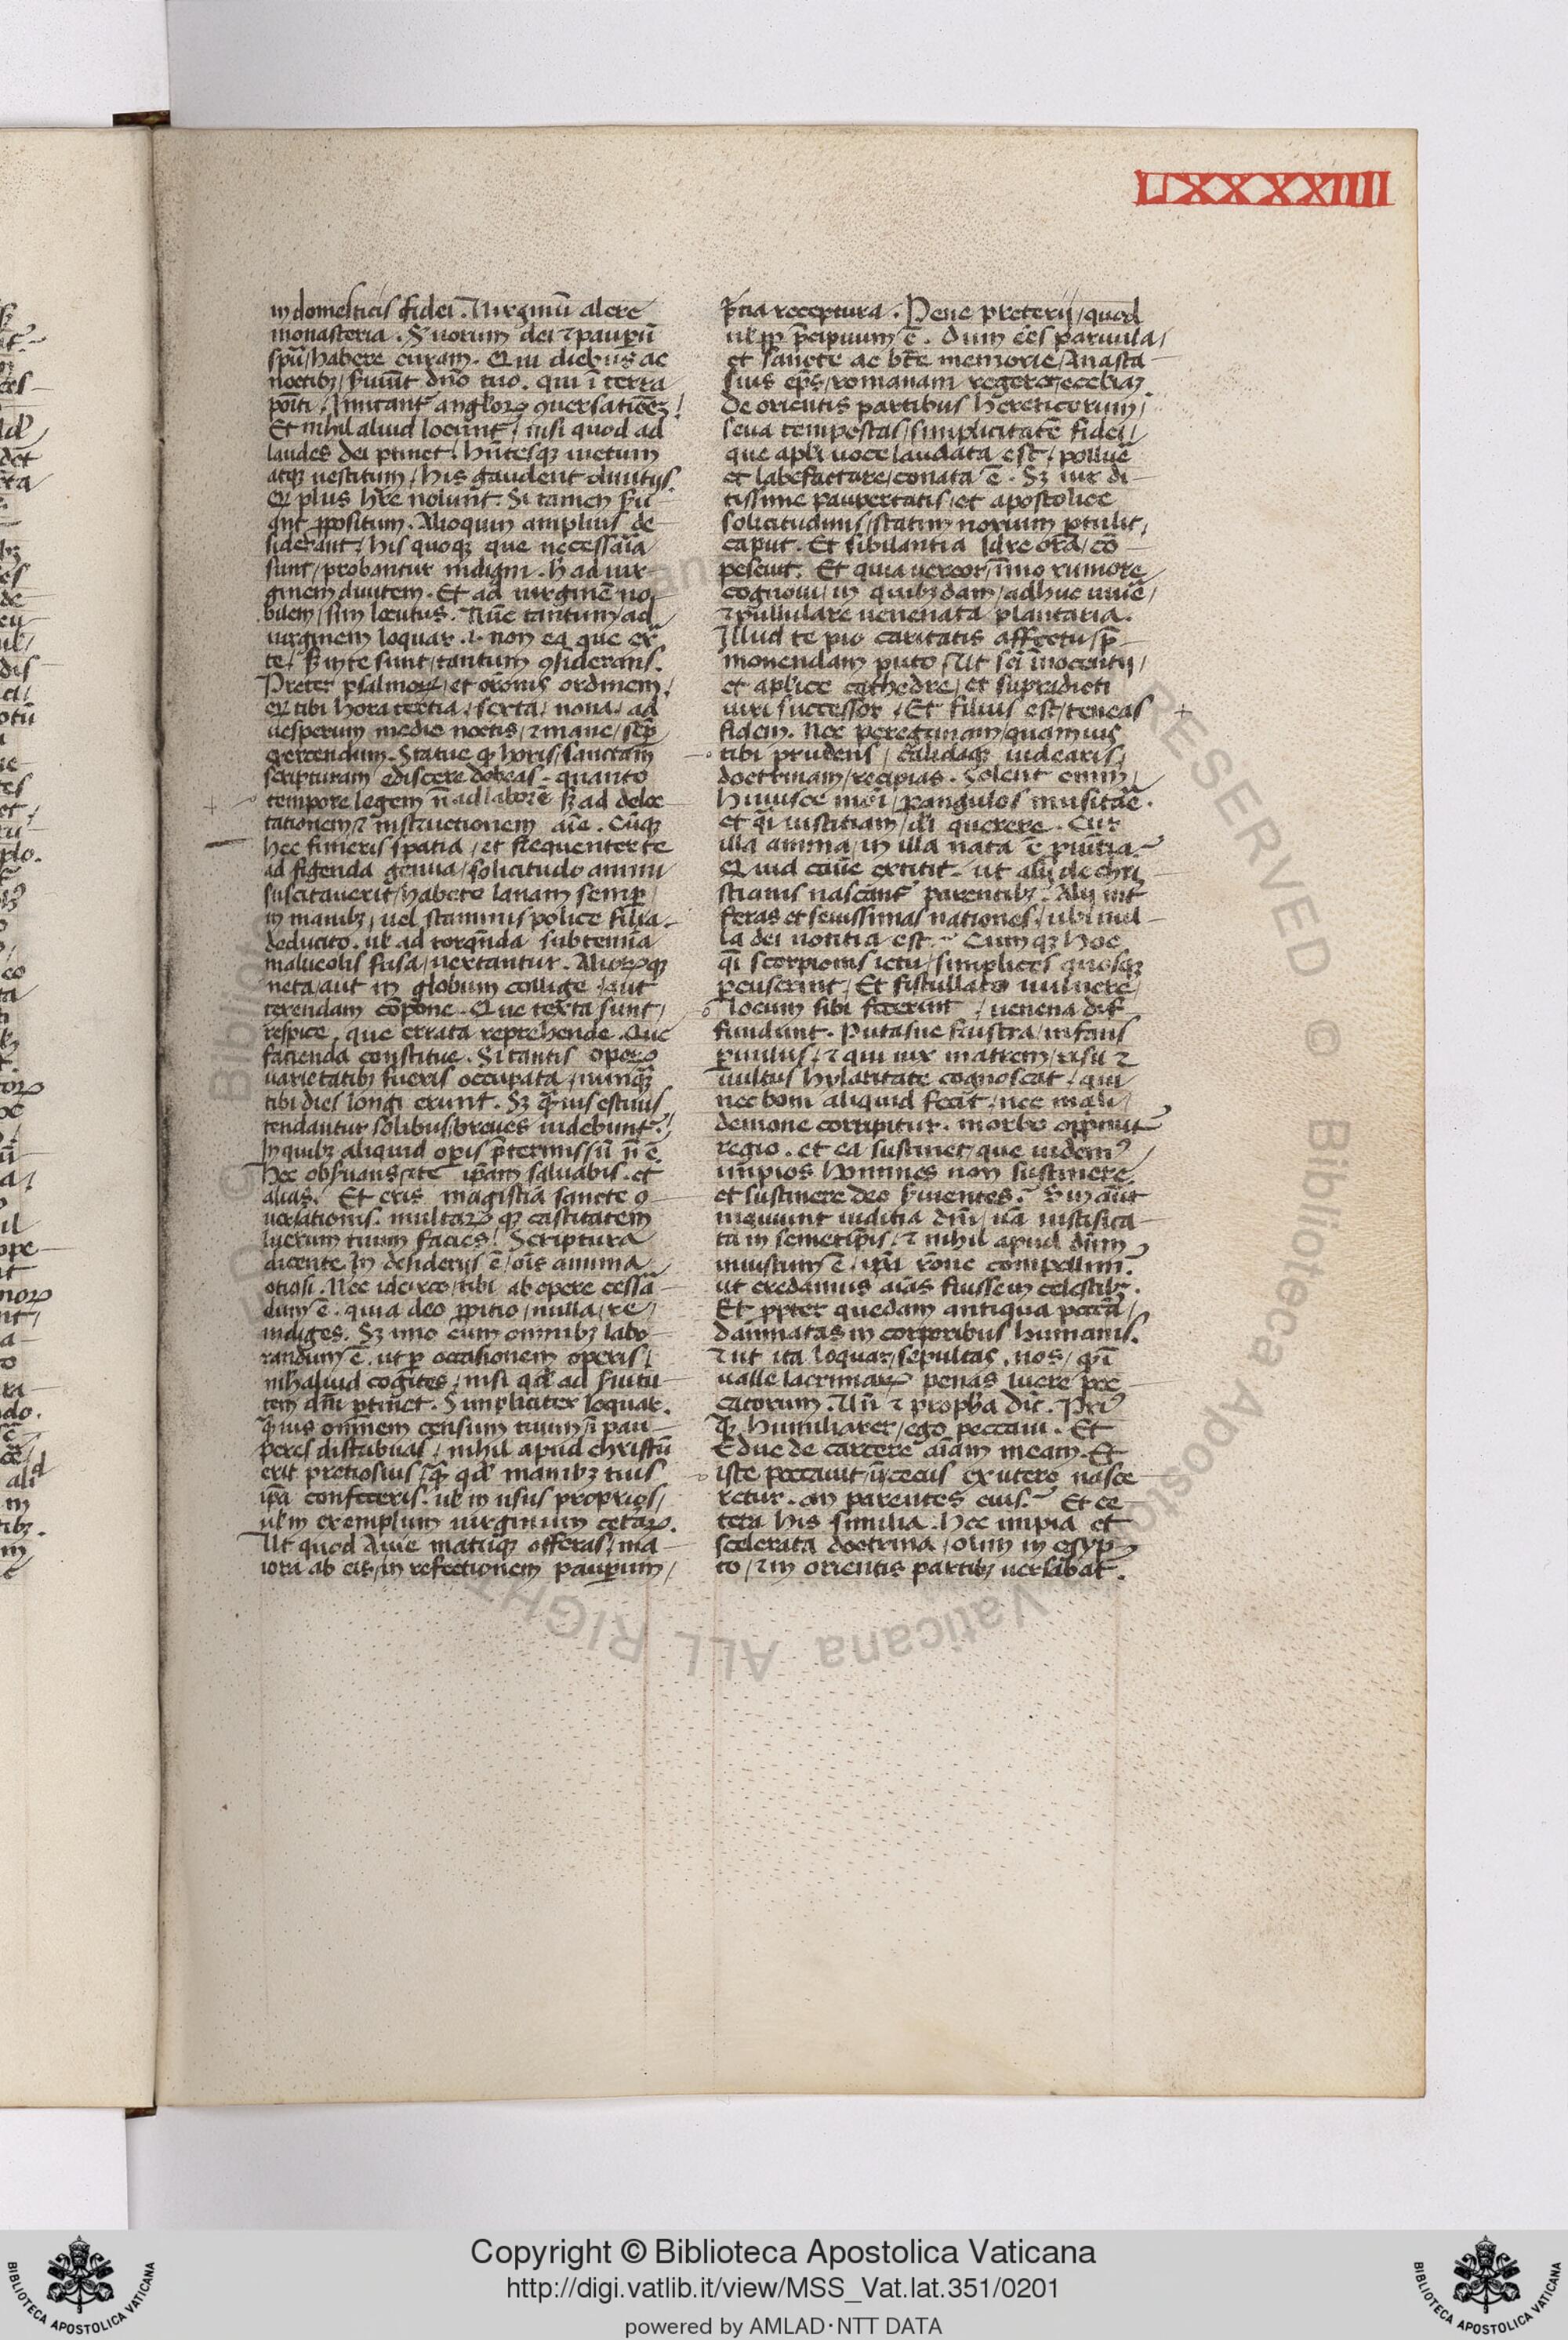 LXXXXIIII
in domesticis fidei. Virginū alere
monasteria. S'uorum dei ⁊ paup̄ū
sp̄u / habere curam. Qui diebus ac
noctibꝫ / s'uiūt dn̄o tuo. qui ī terra
poīti / Imitant' angloꝝ ꝯuersatiōeꝫ!
Et nihil aliud locūnt' / nisi quod ad
laudes dei ꝑtinet. hn̄tesqꝫ uictum
atqꝫ uestitum / his gaudent diuitijs.
Qͥ plus hr̄e nolunt. Si tamen s'u
āt ꝓpositum. Alioquin amplius de
siderant / his quoqꝫ que necessaīa
sunt / probantur indigni. h̄ ad uir
ginem diuitem. Et ad uirginē no
bilem / sim locutus. Nūc tantum / ad
uirginem loquar .i. non ea que ex
te / s' in te sunt / tantum ꝯsiderans.
Preter psalmoꝝ / et or̄onis ordinem /
qͥ tibi hora tertia / sexta / nona / ad
uesperum medio noctis / ⁊ mane / semp̄
gerendum. Statue qͦ horis / sanctam
scripturam ediscere debeas. quanto
tempore legem n̄ ad laborē sꝫ ad delec
tationem / ⁊ instructionem aīe. Cūqꝫ
hec fineris spatia / et frequenter te
ad figenda genua / solicitudo animi
suscitauerit / habeto lanam semꝑ
in manibꝫ / uel staminis police filia
deducito. ul' ad torqn̄da subtemīa
malueolis fusa / uertantur. Aliaꝝqꝫ
neta / aut in globum collige / aut
texendam cōpone. Que texta sunt /
respice. que errata reprehende. Que
facienda constitue. Si tantis oꝑeꝝ
uarietatibꝫ fueris occupata / nunqꝫ
tibi dies longi erunt. Sꝫ qͣuis estiuis
tendantur solibus / breues uidebunt'
In quibꝫ aliquid oꝑis p̄termissū n̄ ē.
Hec obs'uans / ⁊ te ip̄am saluabis. et
alias. Et eris magistra sancte ꝯ
uersationis. multaꝝ qꝫ castitatem
lucrum tuum facies! Scriptura
dicente. In desiderijs ē / oīs anima
otiosi. Nec idcirco / tibi ab opere cessā
dum ē. quia deo ꝓpitio / nulla / re /
indiges. Sꝫ imo cum omnibꝫ labo
randum ē. ut ꝑ occasionem operis /
nihil aliud cogites / nisi qd' ad s'uitu
tem dn̄i ꝑtinet. Simpliciter loquar.
qͣuis omnem censum tuum / ī pau
peres distribuas / nihil apud christū
erit pretiosius / qͣ qd' manibꝫ tuis
ip̄a confeceris. ul' in usus proprios /
ul' in exemplum uirginum cetāꝝ.
Ut quod Auie matriqꝫ offeras / ma
iora ab eis / in refectionem pauꝑum /
p̄tia receptura. Pene preterij / quod
ul' ꝑp̄ p̄cipuum ē. Dum eēs paruula /
et sancte ac bt̄e memorie / Anasta
sius ep̄s / romanam regeret ecclesiaꝫ.
de orientis partibus hereticorum /
seua tempestas / simplicitatē fidei /
que apl'i uoce laudata est / polluē
et labefactare / conata ē. Sꝫ uir di
tissime paupertatis / et apostolice
solicitudinis / statim noxium ꝑtulit /
caput. Et sibilantia Idre ora / cō
pescuit. Et quia uereor / īmo rumore
cognoui / in quibꝫdam / adhuc uiue /
⁊ pullulare uenenata plantaria.
Illud te pio caritatis affectu / p̄
monendam puto / Ut sc̄i īnocentij /
et apl'ice cathedre / et supradicti
uiri successor / Et filius est / teneas
fidem. Nec peregrinam / quamuis
tibi prudens / callidaqꝫ uidearis /
doctrinam / recipias. Solent enim /
huiusce mōi / ꝑangulos musitāe.
et qͣi iustitiam / dī querere. Cur
illa anima / in illa nata ē puīntia?
Quid cāue extitit. ut alij de chri
stianis nascant' parentibꝫ? Alij int'
feras et seuissimas nationes / ubi nul
la dei notitia est? Cumqꝫ hoc
qͣi scorpionis ictu / simplices quosqꝫ
pcuserint / Et fistullato uulnere /
locum sibi fecerint / uenena dif
fundunt. Putasne frustra / infans
ꝑuulus / ⁊ qui uix matrem / risu ⁊
uultus hylaritate cognoscat / qui
nec boni aliquid fecit / nec mali /
demone corripitur. morbo opꝑmit'
regio. et ea sustinet / que uidem'
impios homines non sustinere.
et sustinere deo s'uientes? Sin aūt
inquiunt iuditia dn̄i / uā iustifica
ta in semetip̄is / ⁊ nihil apud dn̄m
iniustum ē / ip̄a rōne compellim'
ut credamus aīas fuisse in celestibꝫ.
Et ꝓpter quedam antiqua peccā /
damnatas in corporibus humanis.
⁊ ut ita loquar / sepultas. nos / qͥ ī
ualle lacrimaꝝ penas luere pec
catorum. Un̄ ⁊ propha dic̄. Priꝰ
qͣ humiliarer / ego peccaui. Et
Educ de carcere aīam meam. Et
iste peccauit / ut cecus ex utero nasce
retur. an parentes eius? Et ce
tera his similia. Hec impia et
scelerata doctrina / olim in egyp
to / ⁊ in orientis partibꝫ uersabat'.
Copyright © Biblioteca Apostolica Vaticana
http://digi.vatlib.it/view/MSS_Vat.lat.351/0201
powered by AMLAD·NTT DATA